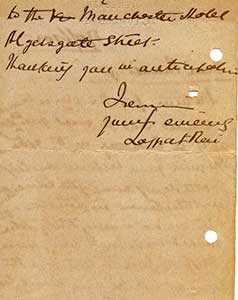 to the Manchester Hotel
Aldersgate Street.
Thanking you in anticipation
I am
yours sincerely
Lajpat Rai